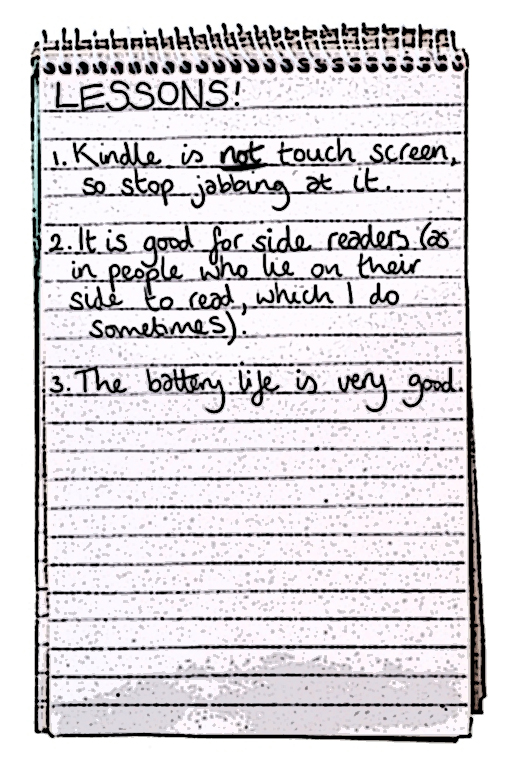 LESSONS!
1. Kindle is not touch screen,
so stop jabbing at it.
2. It is good for side readers (as
in people who lie on their
side to read, which I do
sometimes).
3. The battery life is very good.